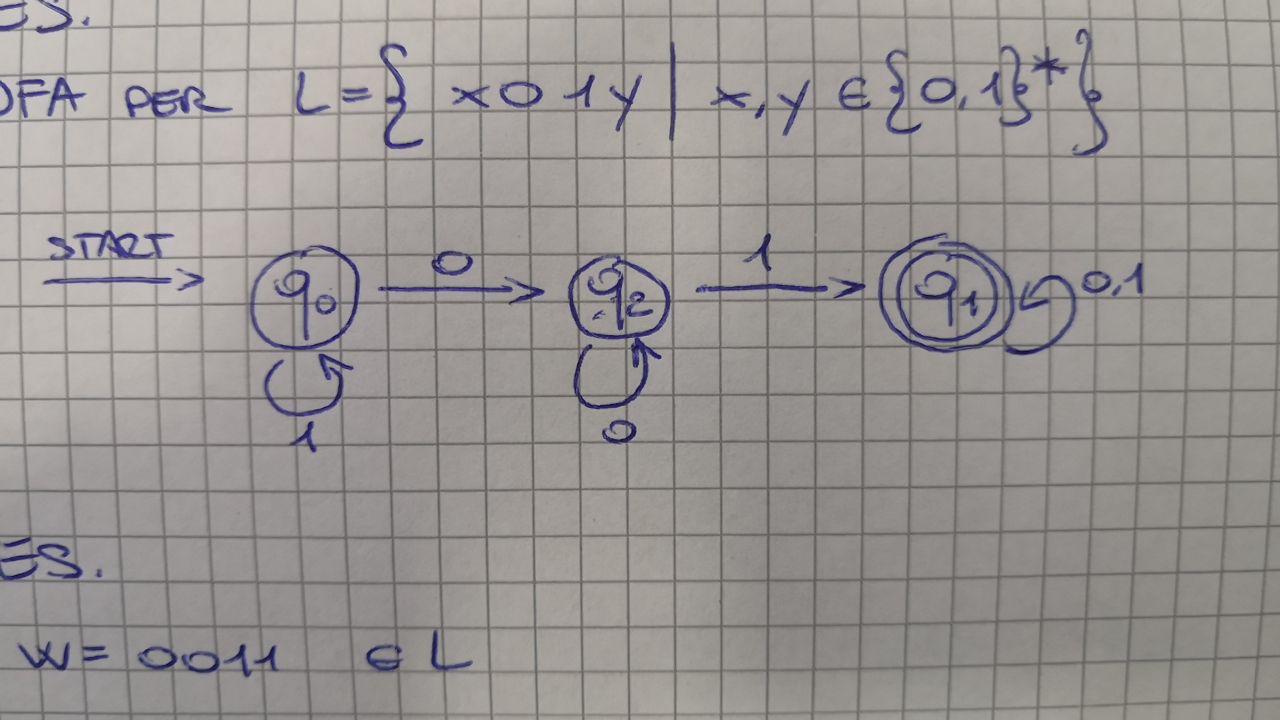 ES.
DFA PER L={ x01y | x,y ∈ {0,1}*}
START q0 0 q2 1 q1 0,1
1 0
ES.
W= 0011 ∈ L